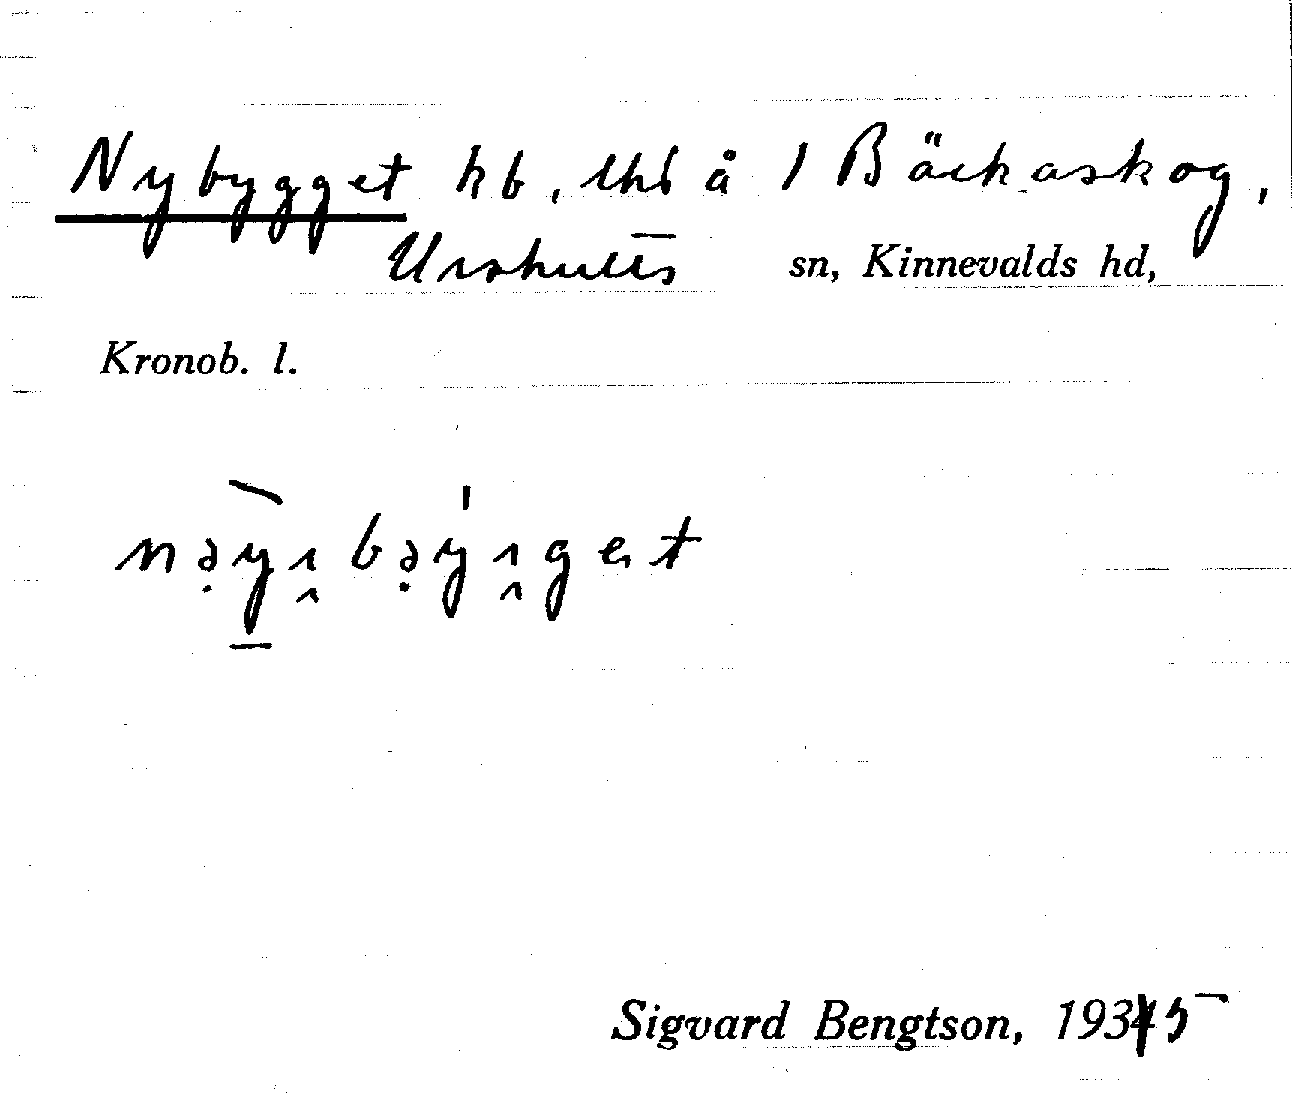 Nybygget hb, lhs å 1 Bäckaskog,
Urshults sn, Kinnevalds hd,
Kronob. l.
Sigvard Bengtson, 1935